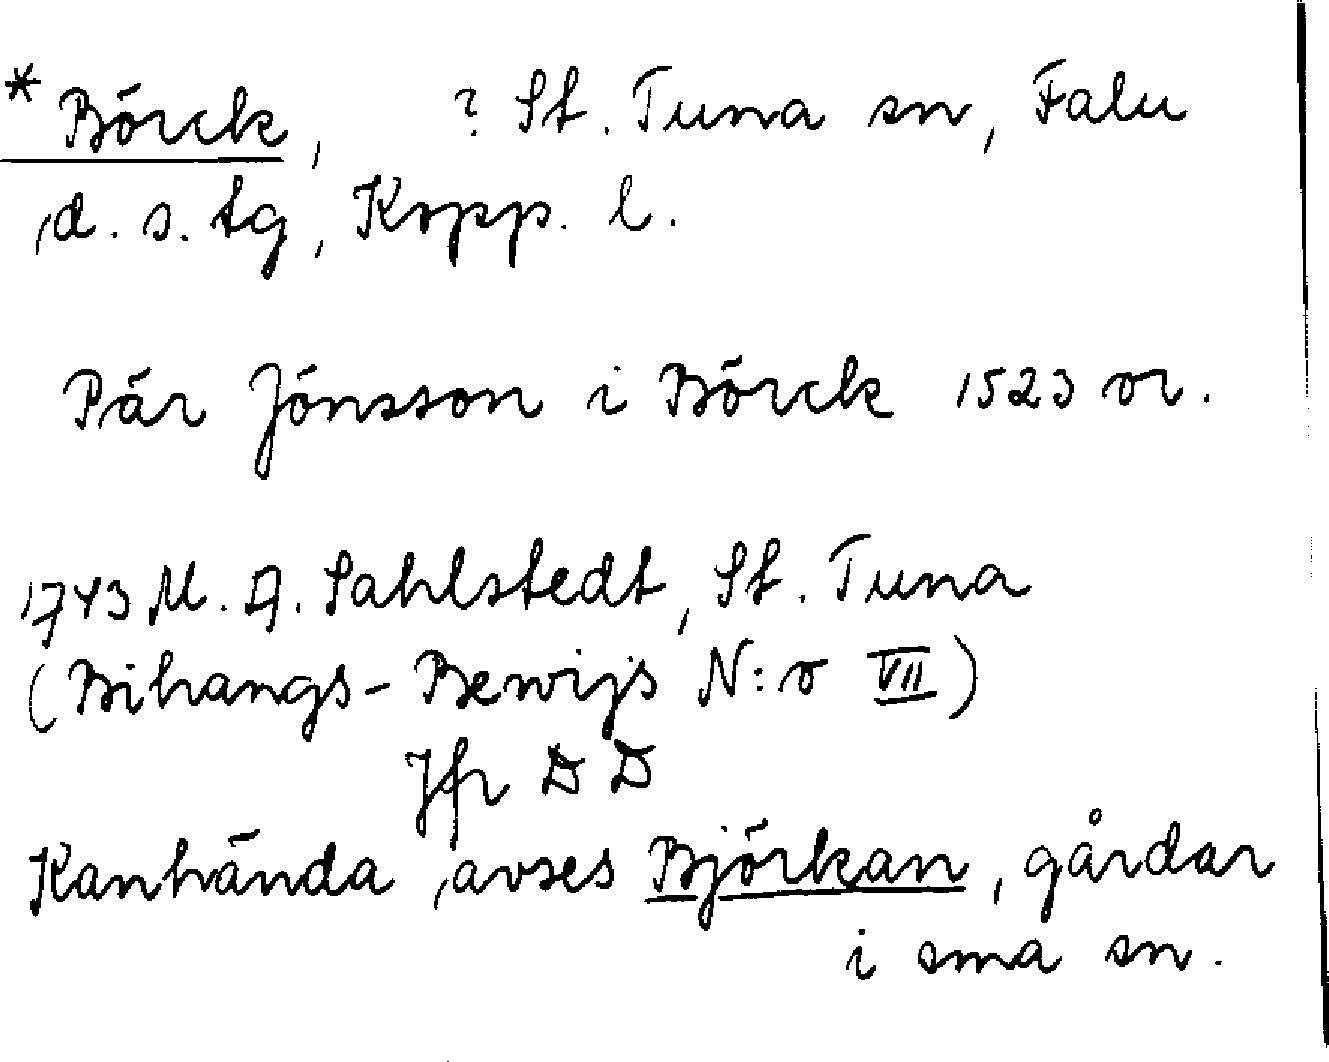 * Börck, ? St. Tuna sn, Falu
d. s. tg, Kopp. l.
Pär Jónsson i Börck 1523 or.
1743 M. A. Sahlstedt, St. Tuna
(Bihangs-Bewijs N:o VII)
Jfr DD
Kanhända avses Björkan, gårdar
i sma sn.